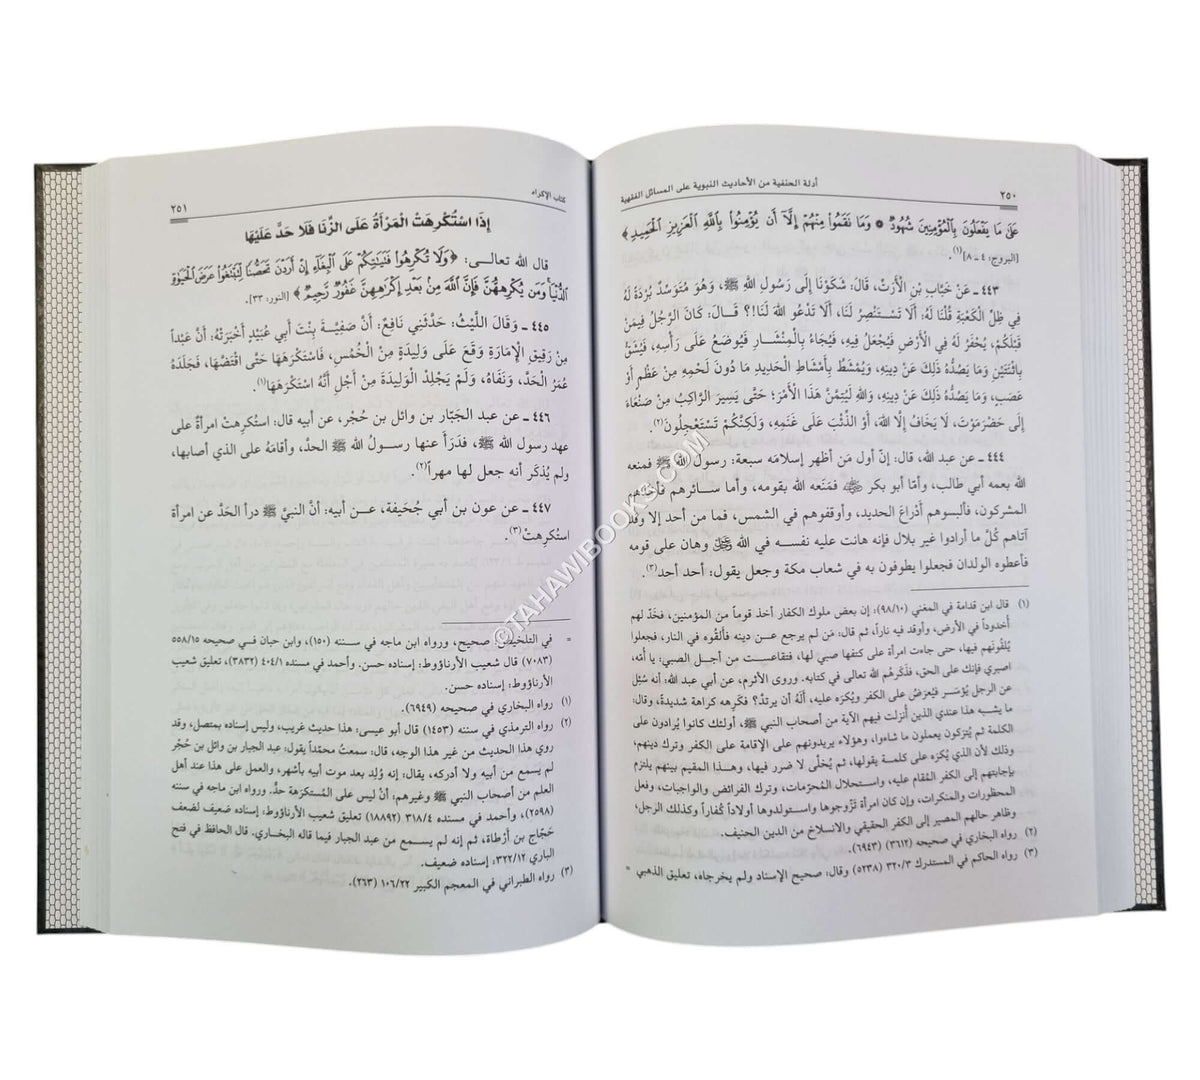 ٢٥٠
أدلة الحنفية من الأحاديث النبوية على المسائل الفقهية
عَلَىٰ مَا يَفْعَلُونَ بِالْمُؤْمِنِينَ شُهُودٌ * وَمَا نَقَمُوا مِنْهُمْ إِلَّا أَن يُؤْمِنُوا بِاللَّهِ الْعَزِيزِ الْحَمِيدِ﴾
[البروج: ٤ ـ ٨](١).
٤٤٣ ـ عَنْ خَبَّابِ بْنِ الْأَرَتِّ، قَالَ: شَكَوْنَا إِلَى رَسُولِ اللهِ ﷺ، وَهُوَ مُتَوَسِّدٌ بُرْدَةً لَهُ
فِي ظِلِّ الْكَعْبَةِ قُلْنَا لَهُ: أَلَا تَسْتَنْصِرُ لَنَا، أَلَا تَدْعُو اللهَ لَنَا!؟ قَالَ: كَانَ الرَّجُلُ فِيمَنْ
قَبْلَكُمْ، يُحْفَرُ لَهُ فِي الْأَرْضِ فَيُجْعَلُ فِيهِ، فَيُجَاءُ بِالْمِنْشَارِ فَيُوضَعُ عَلَى رَأْسِهِ، فَيُشَقُّ
بِاثْنَتَيْنِ وَمَا يَصُدُّهُ ذَلِكَ عَنْ دِينِهِ، وَيُمْشَطُ بِأَمْشَاطِ الْحَدِيدِ مَا دُونَ لَحْمِهِ مِنْ عَظْمٍ أَوْ
عَصَبٍ، وَمَا يَصُدُّهُ ذَلِكَ عَنْ دِينِهِ، وَاللهِ لَيُتِمَّنَّ هَذَا الْأَمْرَ؛ حَتَّى يَسِيرَ الرَّاكِبُ مِنْ صَنْعَاءَ
إِلَى حَضْرَمَوْتَ، لَا يَخَافُ إِلَّا اللهَ، أَوْ الذِّئْبَ عَلَى غَنَمِهِ، وَلَكِنَّكُمْ تَسْتَعْجِلُونَ(٢).
٤٤٤ ـ عن عبد الله، قال: إنّ أول مَن أظهر إسلامَه سبعة: رسول الله ﷺ فمنعه
الله بعمه أبي طالب، وأمّا أبو بكر ﷺ فمَنَعه الله بقومه، وأما سائرهم فأخذهم
المشركون، فألبسوهم أدْراعَ الحديد، وأوقفوهم في الشمس، فما من أحد إلا وقد
آتاهم كُلَّ ما أرادوا غير بلال فإنه هانت عليه نفسه في الله ﷻ وهان على قومه
فأعطوه الولدان فجعلوا يطوفون به في شعاب مكة وجعل يقول: أحد أحد(٣).
(١) قال ابن قدامة في المغني (٩٨/١٠): إن بعض ملوك الكفار أخذ قوماً من المؤمنين، فخَدّ لهم
أخدوداً في الأرض، وأوقد فيه ناراً، ثم قال: مَن لم يرجع عن دينه فألقُوه في النار، فجعلوا
يُلقُونهم فيها، حتى جاءت امرأة على كتفها صبي لها، فتقاعست من أجل الصبي: يا أمّه،
اصبري فإنك على الحق، فذَكَرهُم الله تعالى في كتابه. وروى الأثرم، عن أبي عبد الله: أنه سُئِل
عن الرجل يُؤْسَر فيُعرَضُ على الكفر ويُكرَه عليه، أَلَهُ أن يرتدَّ؟ فكَرِهه كراهة شديدةً، وقال:
ما يشبه هذا عندي الذين أُنزلت فيهم الآية من أصحاب النبي ﷺ، أولئك كانوا يُرادون على
الكلمة ثم يُترَكون يعملون ما شاءوا، وهؤلاء يريدونهم على الإقامة على الكفر وترك دينهم،
وذلك لأن الذي يُكرَه على كلمة يقولها، ثم يُخلَّى لا ضرر فيها، وهذا المقيم بينهم يلتزم
بإجابتهم إلى الكفر المُقام عليه، واستحلال المُحرّمات، وترك الفرائض والواجبات، وفعل
المحظورات والمنكرات، وإن كان امرأة تَزّوجوها واستولدوها أولاداً كُفاراً وكذلك الرجل،
وظاهر حالهم المصير إلى الكفر الحقيقي والانسلاخ من الدين الحنيف.
(٢) رواه البخاري في صحيحه (٣٦١٢) (٦٩٤٣).
(٣) رواه الحاكم في المستدرك ٣٢٠/٣ (٥٢٣٨) وقال: صحيح الإسناد ولم يخرجاه، تعليق الذهبي =
كتاب الإكراه
٢٥١
إِذَا اسْتُكْرِهَتْ الْمَرْأَةُ عَلَى الزِّنَا فَلَا حَدَّ عَلَيْهَا
قال الله تعالى: ﴿وَلَا تُكْرِهُوا فَتَيَاتِكُمْ عَلَى الْبِغَاءِ إِنْ أَرَدْنَ تَحَصُّنًا لِّتَبْتَغُوا عَرَضَ الْحَيَاةِ
الدُّنْيَا وَمَن يُكْرِههُّنَّ فَإِنَّ اللَّهَ مِنْ بَعْدِ إِكْرَاهِهِنَّ غَفُورٌ رَّحِيمٌ﴾ [النور: ٣٣].
٤٤٥ ـ وَقَالَ اللَّيْثُ: حَدَّثَنِي نَافِعٌ: أَنَّ صَفِيَّةَ بِنْتَ أَبِي عُبَيْدٍ أَخْبَرَتْهُ: أَنَّ عَبْداً
مِنْ رَقِيقِ الْإِمَارَةِ وَقَعَ عَلَى وَلِيدَةٍ مِنْ الْخُمُسِ، فَاسْتَكْرَهَهَا حَتَّى اقْتَضَّهَا، فَجَلَدَهُ
عُمَرُ الْحَدَّ، وَنَفَاهُ، وَلَمْ يَجْلِدْ الْوَلِيدَةَ مِنْ أَجْلِ أَنَّهُ اسْتَكْرَهَهَا(١).
٤٤٦ ـ عن عبد الجَبّار بن وائل بن حُجْر، عن أبيه قال: استُكرِهتْ امرأةٌ على
عهد رسول الله ﷺ، فدَرَأَ عنها رسولُ الله ﷺ الحدَّ، وأقامَهُ على الذي أصابها،
ولم يُذكَر أنه جعل لها مهراً(٢).
٤٤٧ ـ عن عون بن أبي جُحَيفة، عن أبيه: أنَّ النبيَّ ﷺ درأ الحَدَّ عن امرأة
استُكرِهتْ(٣).
= في التلخيص: صحيح، ورواه ابن ماجه في سننه (١٥٠)، وابن حبان في صحيحه ٥٥٨/١٥
(٧٠٨٣) قال شعيب الأرناؤوط: إسناده حسن. وأحمد في مسنده ٤٠٤/١ (٣٨٣٢)، تعليق شعيب
الأرناؤوط: إسناده حسن.
(١) رواه البخاري في صحيحه (٦٩٤٩).
(٢) رواه الترمذي في سننه (١٤٥٣) قال أبو عيسى: هذا حديث غريب، وليس إسناده بمتصل، وقد
روي هذا الحديث من غير هذا الوجه، قال: سمعتُ محمّداً يقول: عبد الجبار بن وائل بن حُجْر
لم يَسمع من أبيه ولا أدركه، يقال: إنه وُلِد بعد موت أبيه بأشهر، والعمل على هذا عند أهل
العلم من أصحاب النبي ﷺ وغيرهم: أنْ ليس على المستكرَهة حدٌّ. ورواه ابن ماجه في سننه
(٢٥٩٨)، وأحمد في مسنده ٣١٨/٤ (١٨٨٩٢) تعليق شعيب الأرناؤوط: إسناده ضعيف لضعف
حَجّاج بن أَرْطاة، ثم إنه لم يسمع من عبد الجبار فيما قاله البخاري. قال الحافظ في فتح
الباري ٣٢٢/١٢: إسناده ضعيف.
(٣) رواه الطبراني في المعجم الكبير ١٠٦/٢٢ (٢٦٣).
©TAHAWIBOOKS.COM